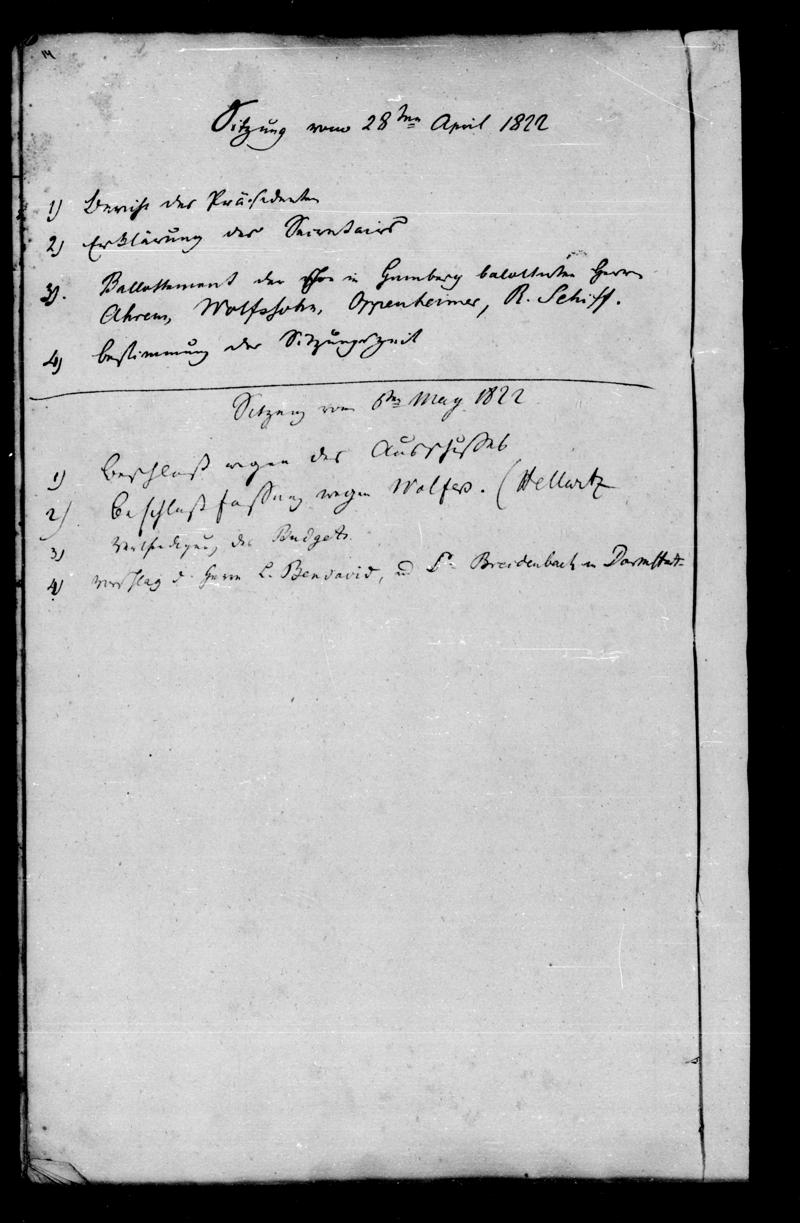 14
Sitzung vom 28ten April 1822
1) Bericht des Präsidenten
2) Erklärung des Secretairs
3). Ballottement der schon in Hamburg balottirten Herrn
Ahrens, Wolfssohn, Oppenheimer, R. Schiff.
4) Bestimmung der Sitzungszeit
Sitzung vom 6ten May 1822
1) Beschluß wegen des Ausschusses
2) Beschlußfassung wegen Wolfers. (Hellwitz
3) des Budgets.
4) Vorschlag d. Herrn L. Bendavid, und Dr Breidenbach in Darmstadt